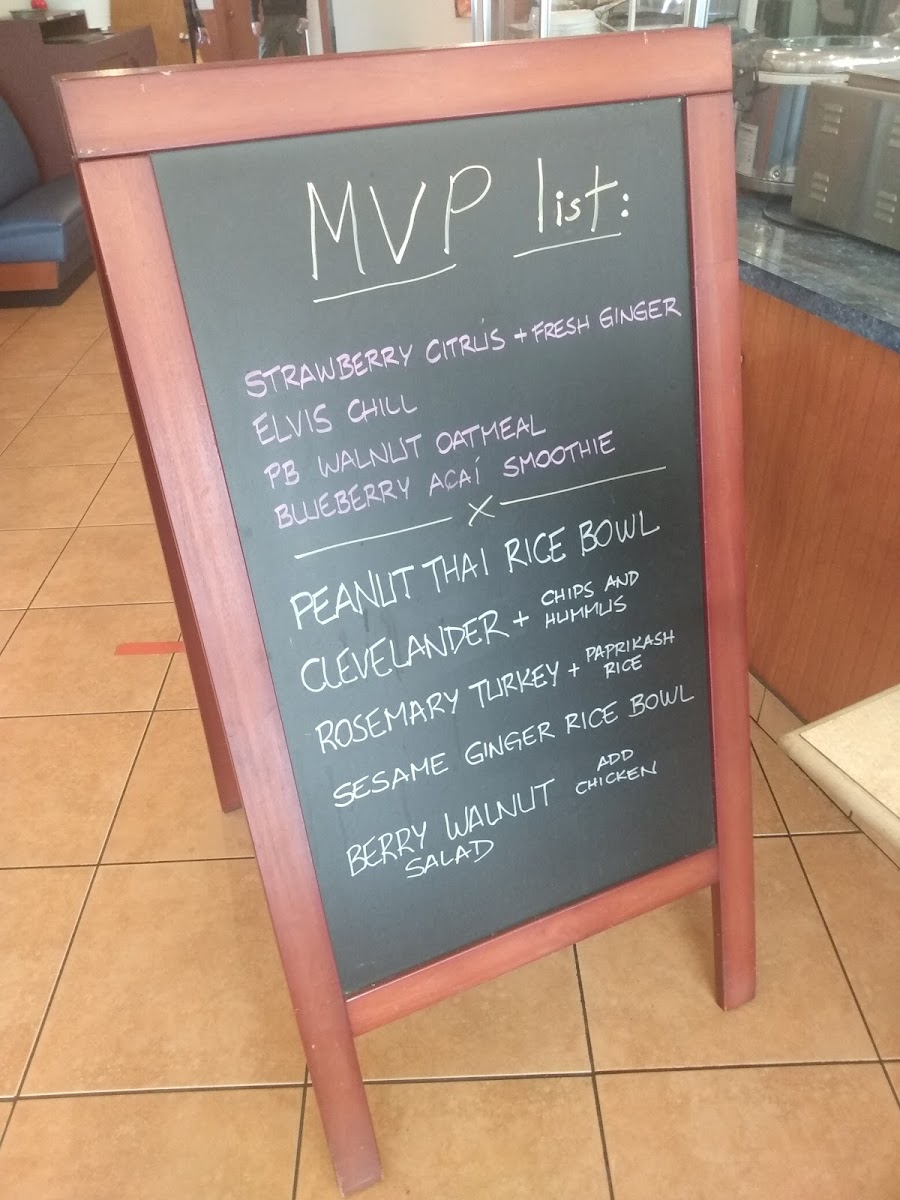 MVP list:
STRAWBERRY CITRUS + FRESH GINGER
ELVIS CHILL
PB WALNUT OATMEAL
BLUEBERRY AÇAÍ SMOOTHIE
X
PEANUT THAI RICE BOWL
CLEVELANDER + CHIPS AND
HUMMUS
ROSEMARY TURKEY + PAPRIKASH
RICE
SESAME GINGER RICE BOWL
BERRY WALNUT SALAD
ADD
CHICKEN